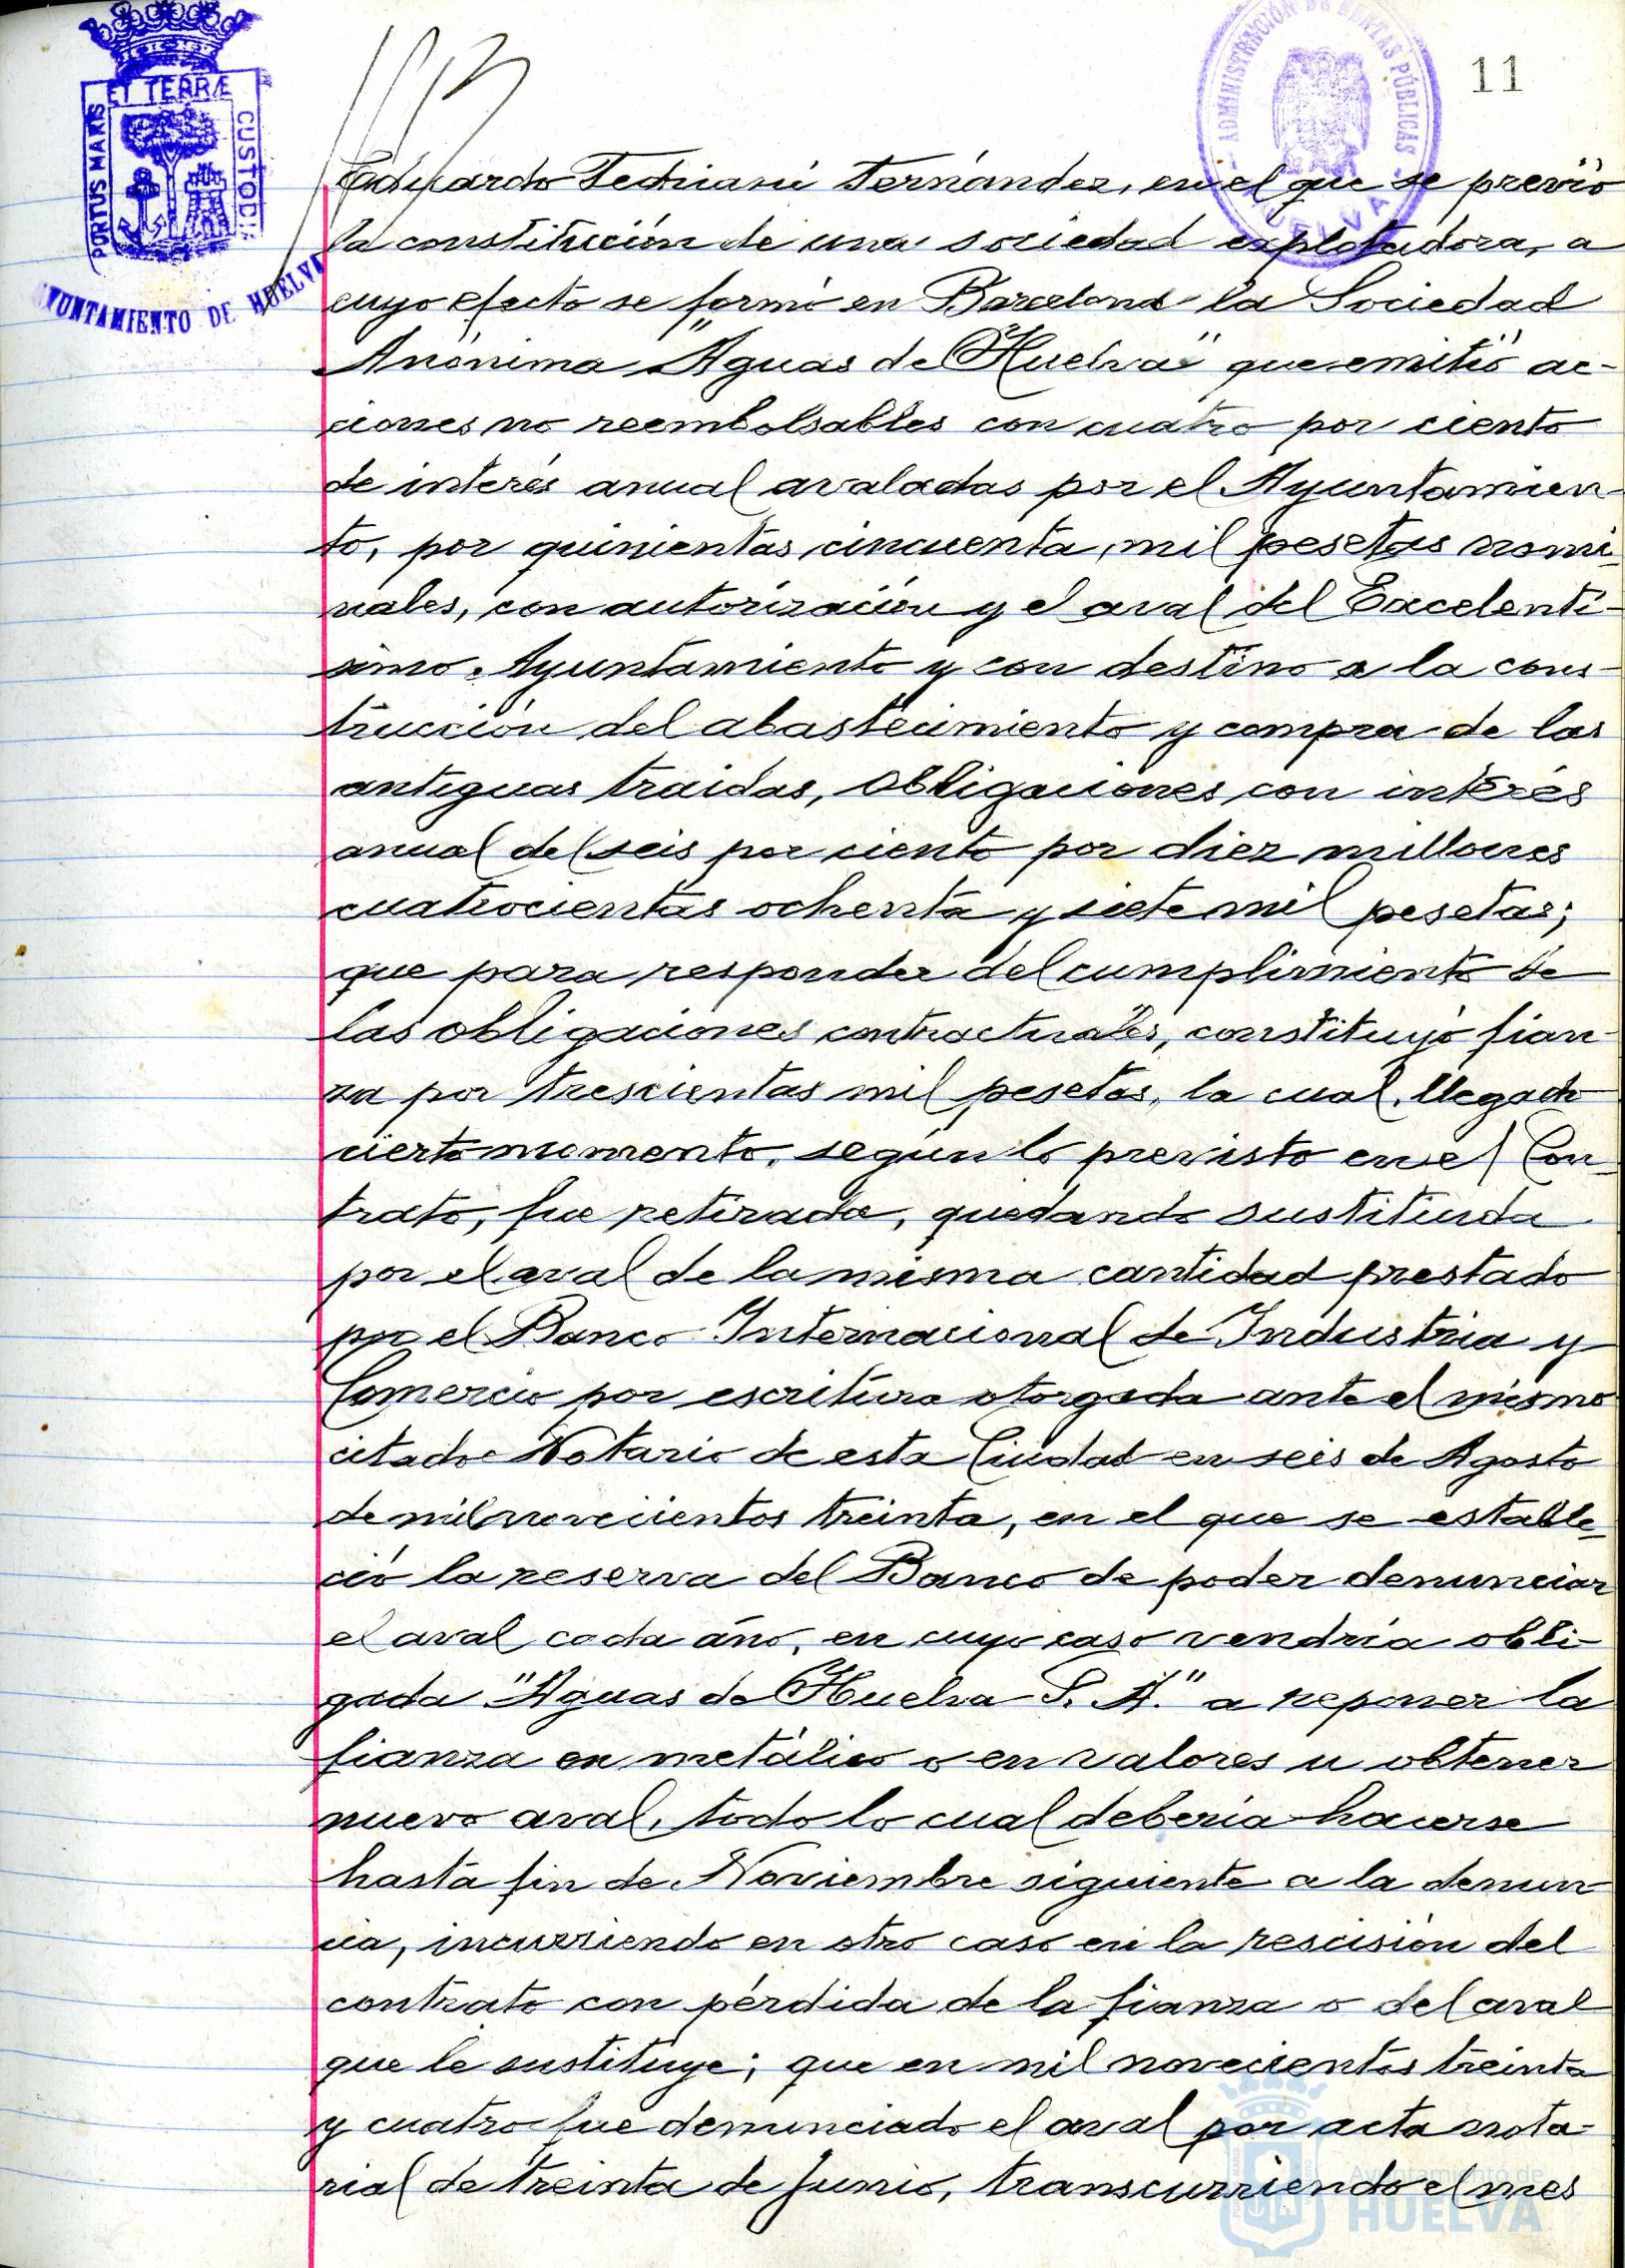 ADMINISTRACIÓN DE RENTAS PÚBLICAS
HUELVA
11
ET TERRÆ
PORTUS MARIS
CUSTODIA
AYUNTAMIENTO DE HUELVA
Eduardo Fernández, en el que se previó
la constitución de una sociedad explotadora, a
cuyo efecto se formó en Barcelona la Sociedad
Anónima "Aguas de Huelva" que emitió ac-
ciones no reembolsables con cuatro por ciento
de interés anual avaladas por el Ayuntamien-
to, por quinientas cincuenta mil pesetas nomi-
nales, con autorización y el aval del Excelentí-
simo. Ayuntamiento y con destino a la cons-
trucción del abastecimiento y compra de las
antiguas traidas, obligaciones con interés
anual del seis por ciento por diez millones
cuatrocientas ochenta y siete mil pesetas;
que para responder del cumplimiento de
las obligaciones contractuales, constituyó fian-
za por trescientas mil pesetas, la cual, llegado
cierto momento, según lo previsto en el Con-
trato, fue retirada, quedando sustituida
por el aval de la misma cantidad prestado
por el Banco Internacional de Industria y
Comercio por escritura otorgada ante el mismo
citado Notario de esta Ciudad en seis de Agosto
de mil novecientos treinta, en el que se estable-
ció la reserva del Banco de poder denunciar
el aval cada año, en cuyo caso vendría obli-
gada "Aguas de Huelva S. A." a reponer la
fianza en metálico o en valores u obtener
nuevo aval, todo lo cual debería hacerse
hasta fin de Noviembre siguiente a la denun-
cia, incurriendo en otro caso en la rescisión del
contrato con pérdida de la fianza o del aval
que le sustituye; que en mil novecientos treinta
y cuatro fue denunciado el aval por acta nota-
rial de treinta de Junio, transcurriendo el mes
Ayuntamiento de
HUELVA